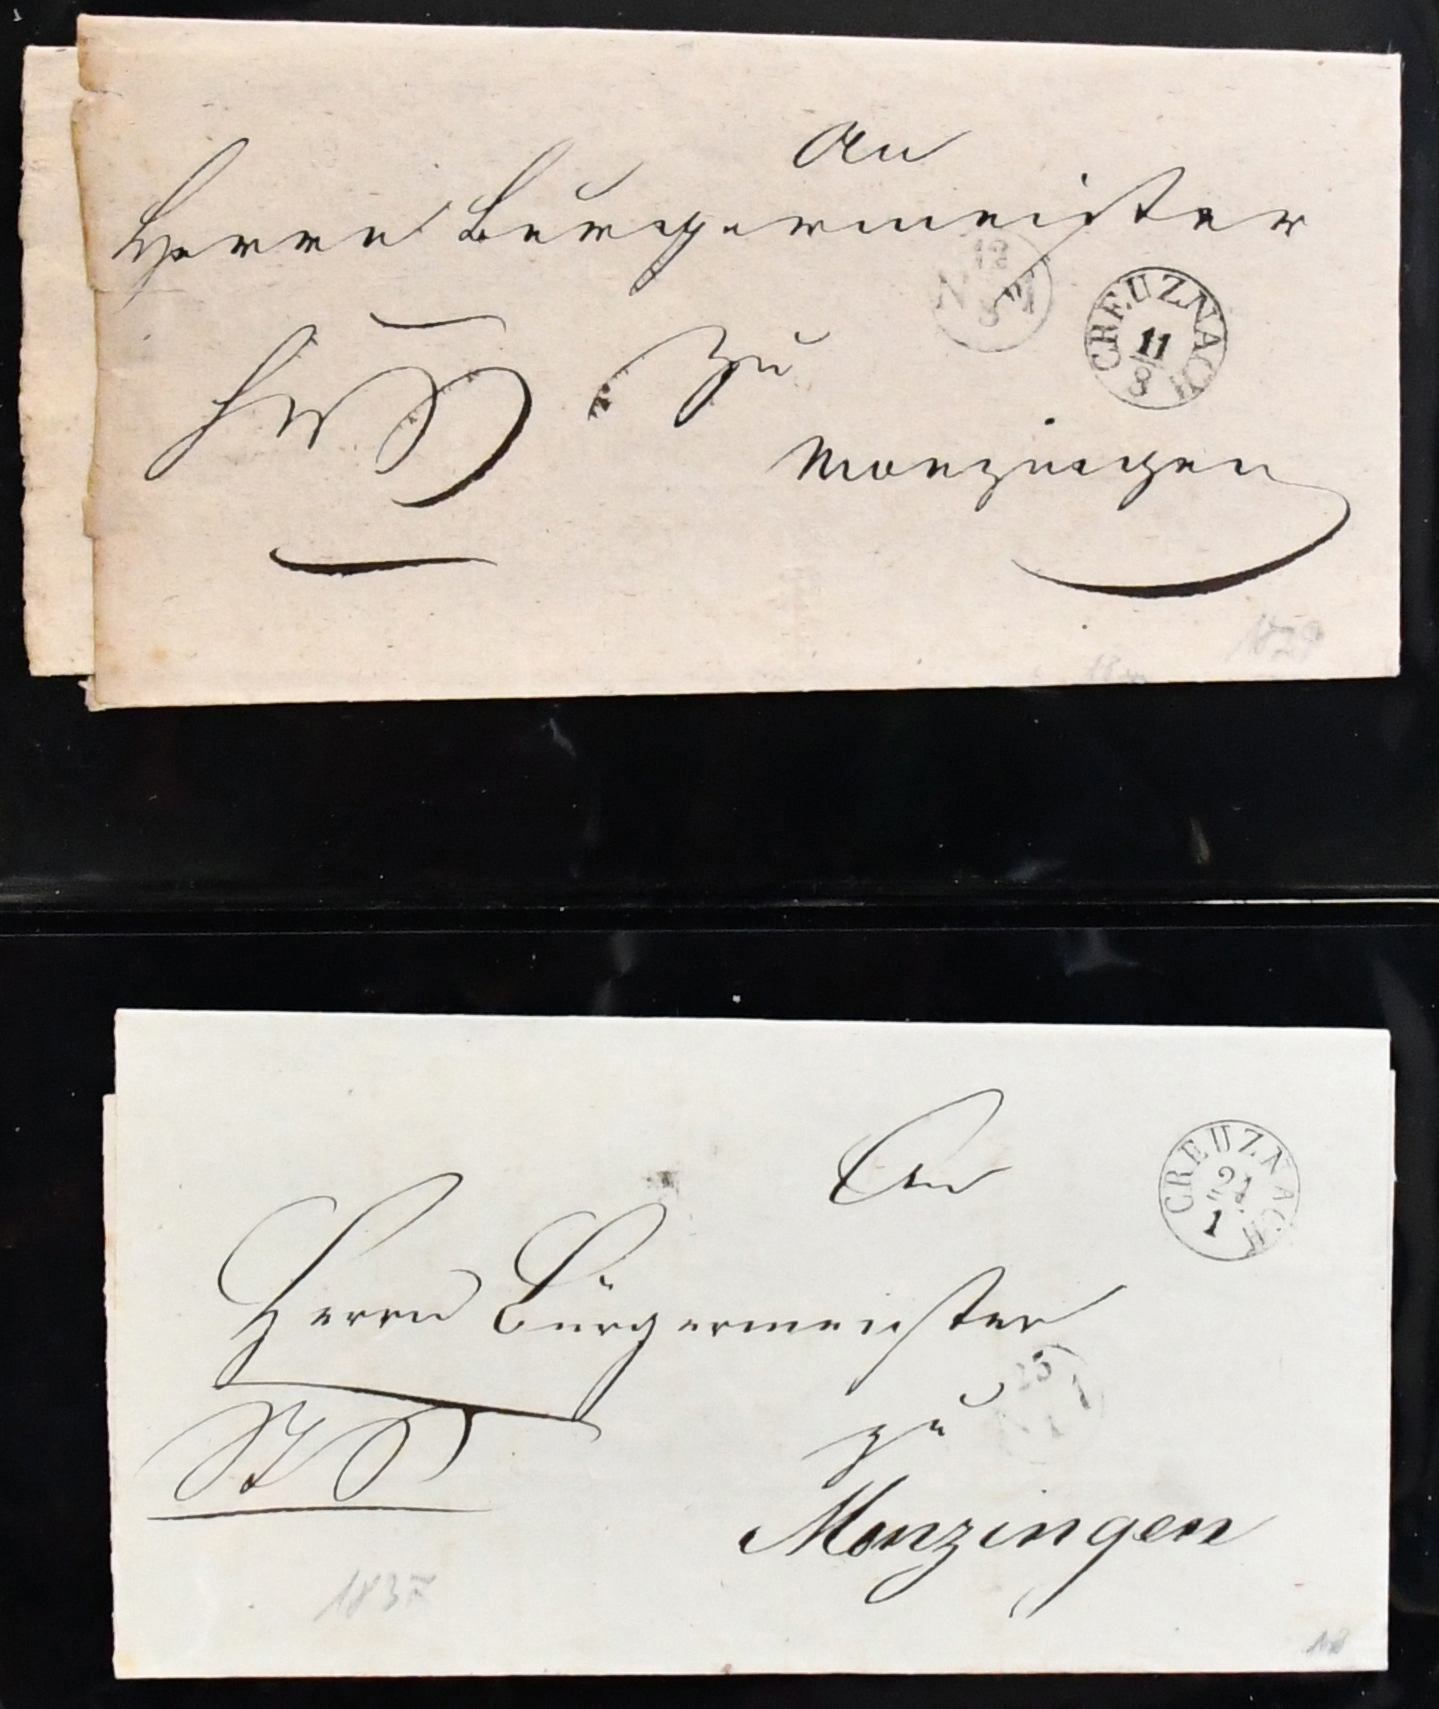 An
Herrn Bürgermeister
12
N 1
8
CREUZNACH
11
8
Zu
Monzingen
1829
An
CREUZNACH
24
1
Herrn Bürgermeister
25
N 1
1
zu
Monzingen
1837